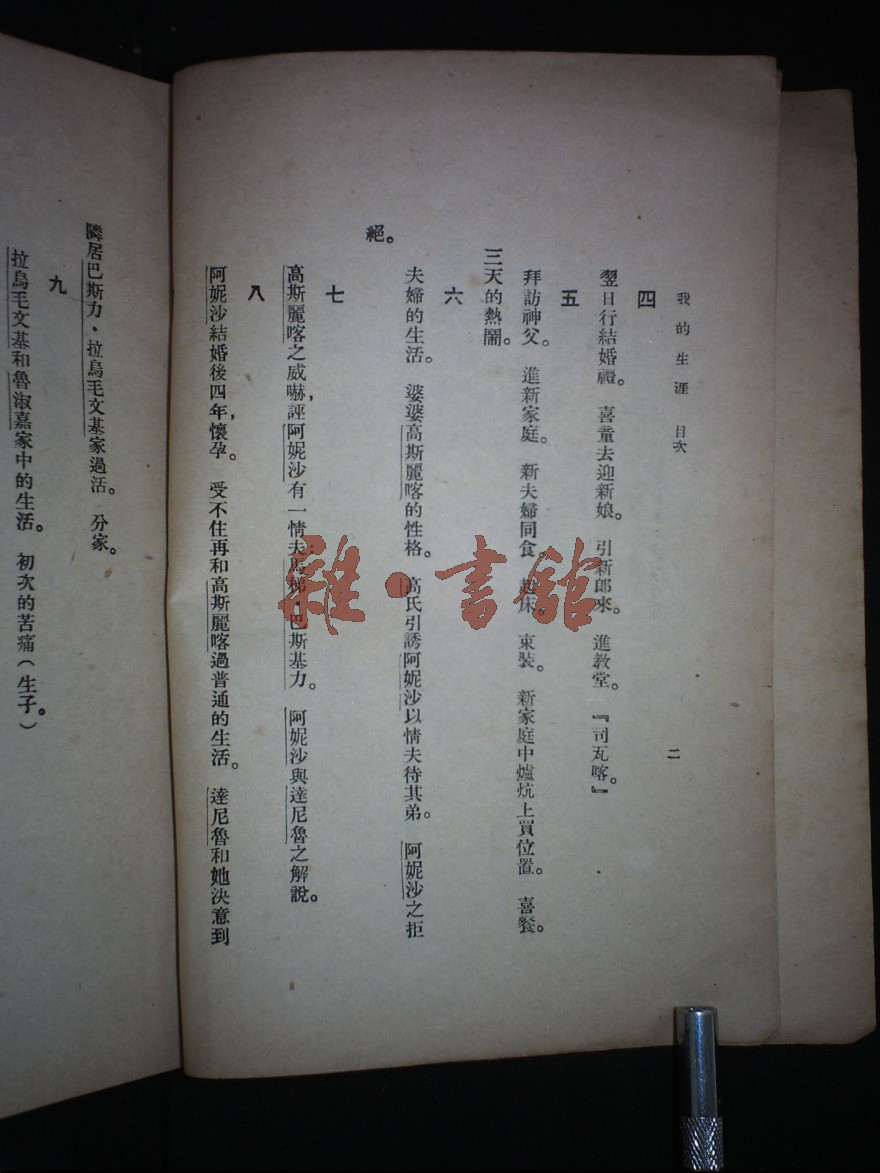 我的生涯 目次
二
四
翌日行結婚禮。 喜童去迎新娘。 引新郎來。 進教堂。 『司瓦喀。』
五
拜訪神父。 進新家庭。 新夫婦同食。 起床。 束裝。 新家庭中爐炕上買位置。 喜餐。
三天的熱鬧。
六
夫婦的生活。 婆婆高斯麗喀的性格。 高氏引誘阿妮沙以情夫待其弟。 阿妮沙之拒
絕。
七
高斯麗喀之威嚇，誣阿妮沙有一情夫馬梯・巴斯基力。 阿妮沙與達尼魯之解說。
八
阿妮沙結婚後四年，懷孕。 受不住再和高斯麗喀過普通的生活。 達尼魯和她決意到
隣居巴斯力・拉烏毛文基家過活。 分家。
九
拉烏毛文基和魯淑嘉家中的生活。 初次的苦痛（生子。）
雜・書館